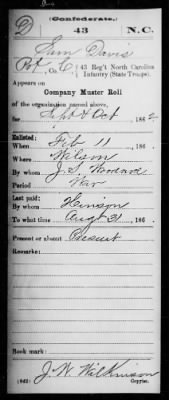 (Confederate.)
D 43 N.C.
Sam Davis
Pvt, Co. C, 43 Reg't North Carolina
Infantry (State Troops).
Appears on
Company Muster Roll
of the organization named above,
for Sept & Oct, 1862
Enlisted:
When Feb 11, 186
Where Wilson
By whom J. S. Woodard
Period War
Last paid:
By whom Hinson
To what time Aug 31, 186
Present or absent Present
Remarks:
Book mark:
J. W. Wilkinson
(642) Copyist.